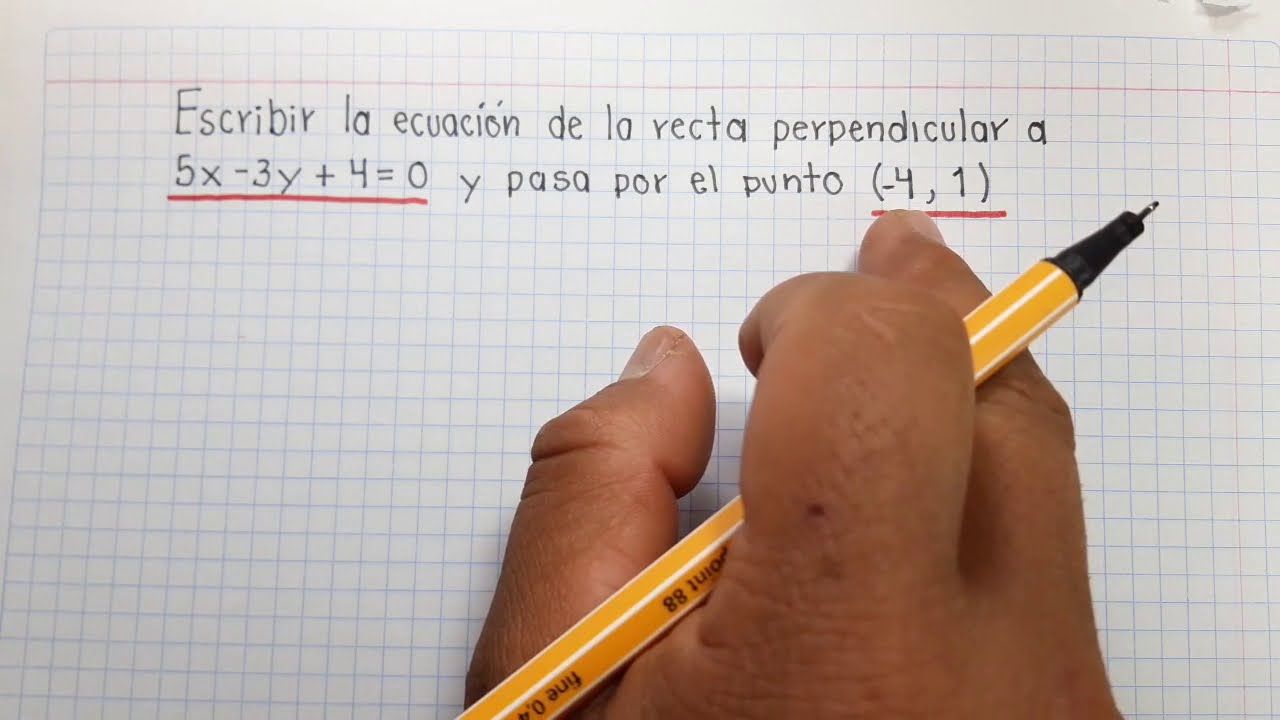 Escribir la ecuación de la recta perpendicular a
5x - 3y + 4 = 0 y pasa por el punto (-4, 1)
point 88
fine 0,4